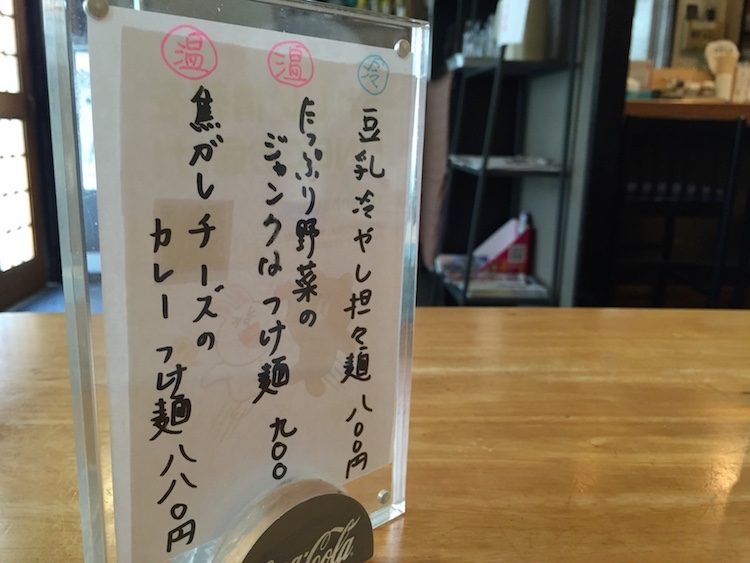 冷
豆乳冷やし担々麺 八〇〇円
温
たっぷり野菜の
ジャンクなつけ麺 九〇〇
温
焦がしチーズの
カレーつけ麺 八八〇円
Coca-Cola